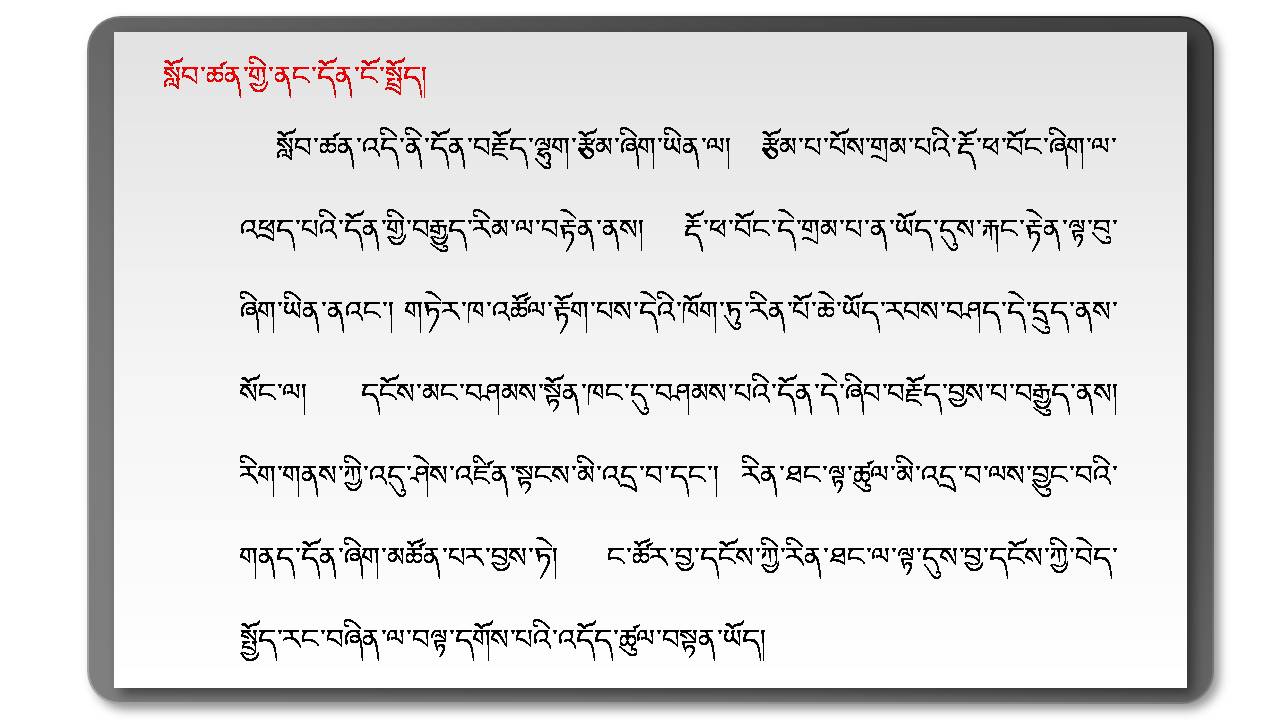 སློབ་ཚན་གྱི་ནང་དོན་ངོ་སྤྲོད།
སློབ་ཚན་འདི་ནི་དོན་བརྗོད་ལྷུག་རྩོམ་ཞིག་ཡིན་ལ། རྩོམ་པ་པོས་གྲམ་པའི་རྡོ་ཕ་བོང་ཞིག་ལ་
འཕྲད་པའི་དོན་གྱི་བརྒྱུད་རིམ་ལ་བརྟེན་ནས། རྡོ་ཕ་བོང་དེ་གྲམ་པ་ན་ཡོད་དུས་རྐང་རྟེན་ལྟ་བུ་
ཞིག་ཡིན་ནའང་། གཏེར་ཁ་འཚོལ་རྟོག་པས་དེའི་ཁོག་ཏུ་རིན་པོ་ཆེ་ཡོད་རབས་བཤད་དེ་དྲུད་ནས་
སོང་ལ། དངོས་མང་བཤམས་སྟོན་ཁང་དུ་བཤམས་པའི་དོན་དེ་ཞིབ་བརྗོད་བྱས་པ་བརྒྱུད་ནས།
རིག་གནས་ཀྱི་འདུ་ཤེས་འཛིན་སྟངས་མི་འདྲ་བ་དང་། རིན་ཐང་ལྟ་ཚུལ་མི་འདྲ་བ་ལས་བྱུང་བའི་
གནད་དོན་ཞིག་མཚོན་པར་བྱས་ཏེ། ང་ཚོར་བྱ་དངོས་ཀྱི་རིན་ཐང་ལ་ལྟ་དུས་བྱ་དངོས་ཀྱི་བེད་
སྤྱོད་རང་བཞིན་ལ་བལྟ་དགོས་པའི་འདོད་ཚུལ་བསྟན་ཡོད།